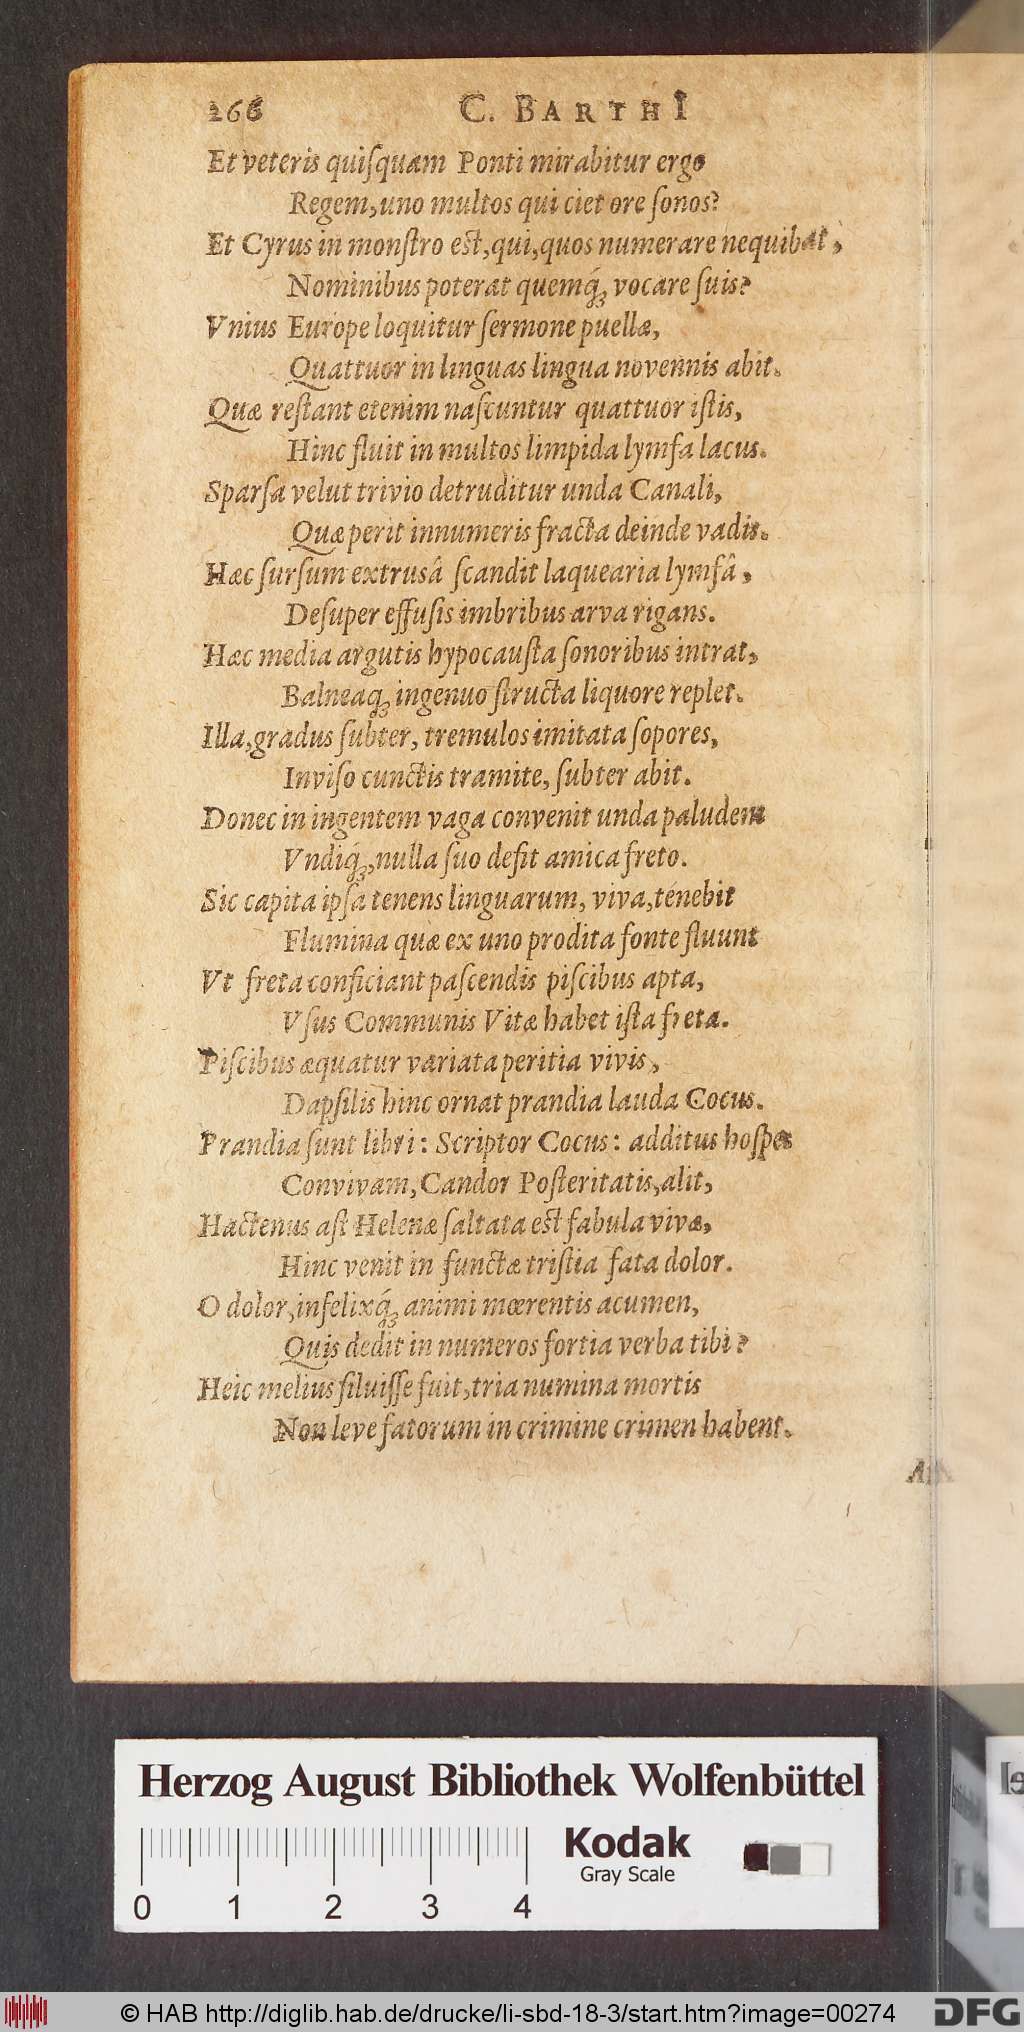 266 C. BARTHI
Et veteris quiſquam Ponti mirabitur ergo
Regem, uno multos qui ciet ore ſonos?
Et Cyrus in monſtro eſt, qui, quos numerare nequibat,
Nominibus poterat quemq́ꝫ vocare ſuis?
Vnius Europe loquitur ſermone puellæ,
Quattuor in linguas lingua novennis abit.
Quæ reſtant etenim naſcuntur quattuor iſtis,
Hinc fluit in multos limpida lymfa lacus.
Sparſa velut trivio detruditur unda Canali,
Quæ perit innumeris fracta deinde vadis.
Hæc ſurſum extrusâ ſcandit laquearia lymfâ,
Deſuper effuſis imbribus arva rigans.
Hæc media argutis hypocauſta ſonoribus intrat,
Balneaqꝫ ingenuo ſtructa liquore replet.
Illa, gradus ſubter, tremulos imitata ſopores,
Inviſo cunctis tramite, ſubter abit.
Donec in ingentem vaga convenit unda paludem
Vndiq́ꝫ, nulla ſuo deſit amica freto.
Sic capita ipſa tenens linguarum, viva, tenebit
Flumina quæ ex uno prodita fonte fluunt
Vt freta conficiant paſcendis piſcibus apta,
Vſus Communis Vitæ habet iſta freta.
Piſcibus æquatur variata peritia vivis,
Dapſilis hinc ornat prandia lauda Cocus.
Prandia ſunt libri: Scriptor Cocus: additus hoſpes
Convivam, Candor Poſteritatis, alit,
Hactenus aſt Helenæ ſaltata eſt fabula vivæ,
Hinc venit in functæ triſtia fata dolor.
O dolor, infelixq́ꝫ animi mœrentis acumen,
Quis dedit in numeros fortia verba tibi?
Heic melius ſiluiſſe fuit, tria numina mortis
Non leve fatorum in crimine crimen habent.
Herzog August Bibliothek Wolfenbüttel
Kodak
Gray Scale
0 1 2 3 4
© HAB http://diglib.hab.de/drucke/li-sbd-18-3/start.htm?image=00274
DFG